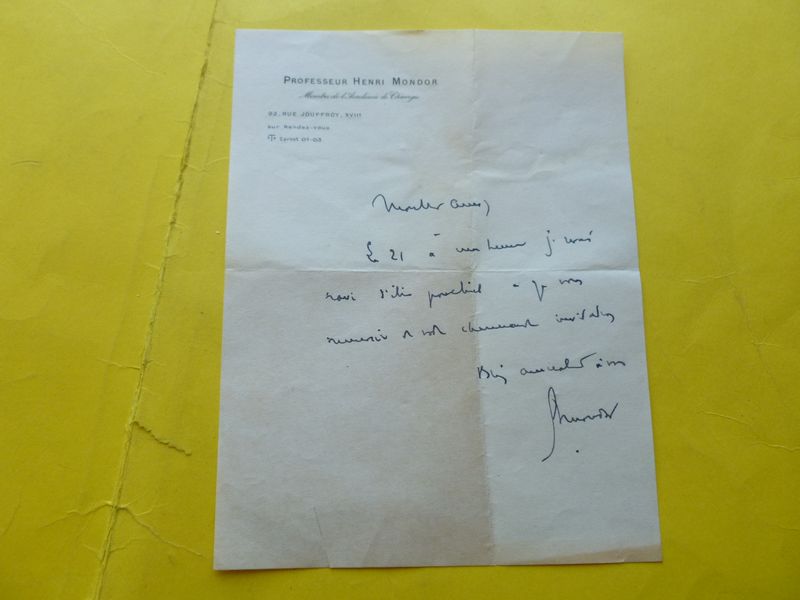 PROFESSEUR HENRI MONDOR
Membre de l'Académie de Chirurgie
92, RUE JOUFFROY, XVIIᴱ
sur Rendez-vous
Carnot 01-03
Mon cher ami,
Le 21 à une heure je serai
ravi d'être ponctuel et je vous
remercie de votre charmante invitation
Bien amicalement à vous
HMondor